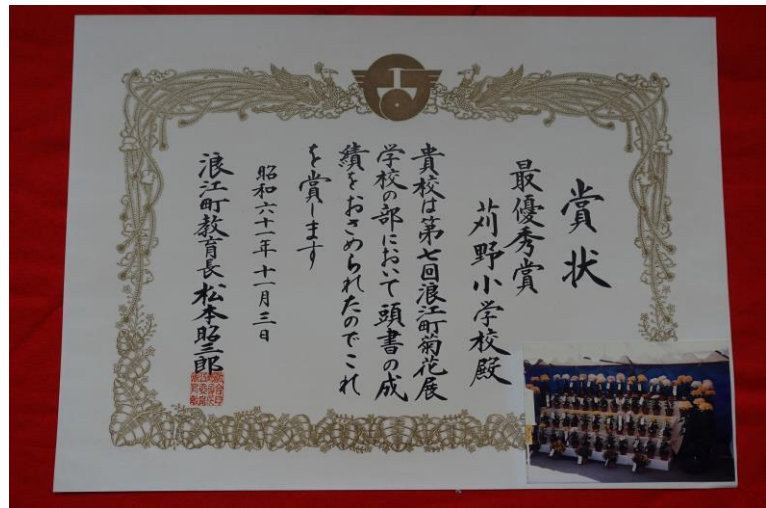 賞状
最優秀賞
苅野小学校殿
貴校は第七回浪江町菊花展
学校の部において頭書の成
績をおさめられたのでこれ
を賞します
昭和六十一年十一月三日
浪江町教育長松本昭三郎